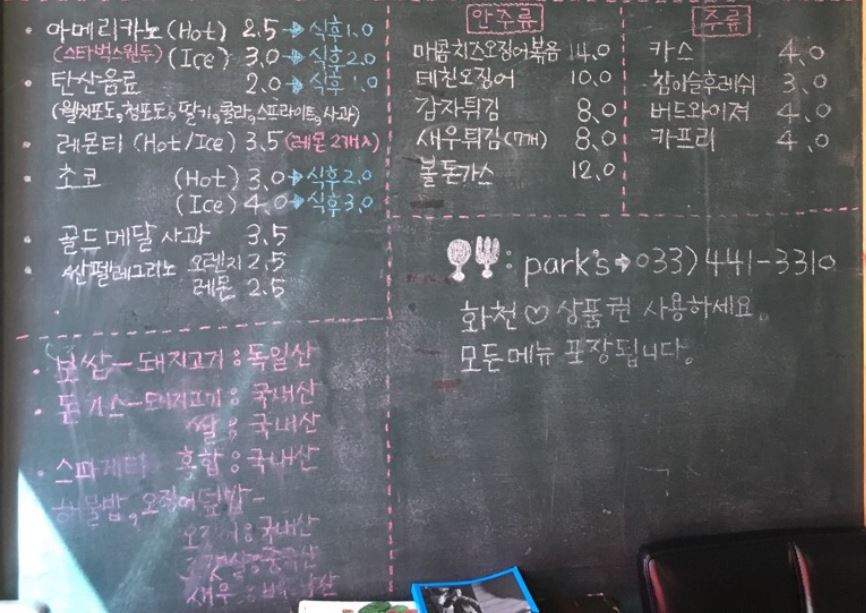 아메리카노 (Hot) 2.5 → 식후 1.0
(스타벅스원두) (Ice) 3.0 → 식후 2.0
탄산음료 2.0 → 식후 1.0
(웰치포도, 청포도, 딸기, 콜라, 스프라이트, 사과)
레몬티 (Hot/Ice) 3.5 (레몬 2개入)
초코 (Hot) 3.0 → 식후 2.0
(Ice) 4.0 → 식후 3.0
골드메달 사과 3.5
싼펠레그리노 오렌지 2.5
레몬 2.5
보쌈 - 돼지고기 : 독일산
돈가스 - 돼지고기 : 국내산
쌀 : 국내산
스파게티 혼합 : 국내산
해물밥, 오징어덮밥 -
오징어 : 국내산
중국산
새우 :
안주류
매콤치즈오징어볶음 14.0
데친오징어 10.0
감자튀김 8.0
새우튀김 (7개) 8.0
볼돈가스 12.0
주류
카스 4.0
참이슬후레쉬 3.0
버드와이져 4.0
카프리 4.0
: park's → 033) 441-3310
화천 ♡ 상품권 사용하세요.
모든메뉴 포장됩니다.